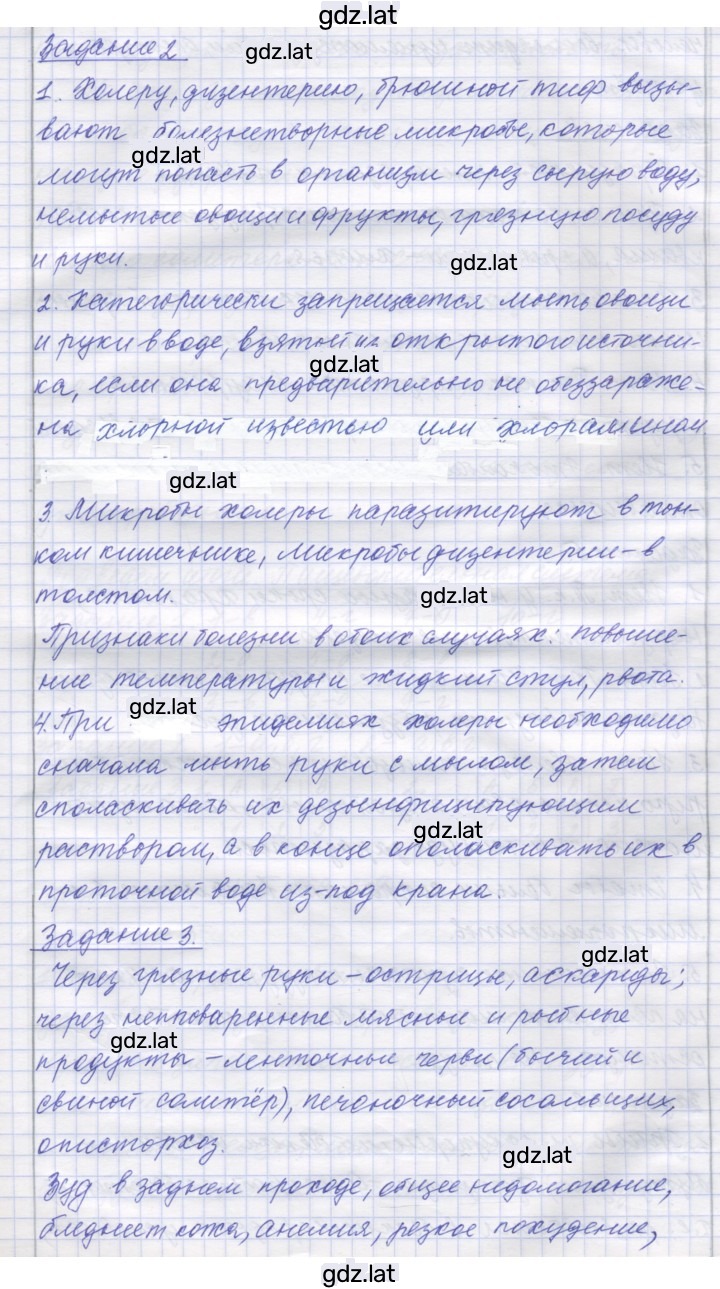 gdz.lat
Задание 2
gdz.lat
1. Холеру, дизентерию, брюшной тиф вызы-
вают болезнетворные микробы, которые
gdz.lat
могут попасть в организм через сырую воду,
немытые овощи и фрукты, грязную посуду
и руки.
gdz.lat
2. Категорически запрещается мыть овощи
и руки в воде, взятой из открытого источни-
gdz.lat
ка, если она предварительно не обеззараже-
на хлорной известью или хлорамином
gdz.lat
3. Микробы холеры паразитируют в тон-
ком кишечнике, микробы дизентерии - в
толстом.
gdz.lat
Признаки болезни в обоих случаях: повыше-
ние температуры и жидкий стул, рвота.
gdz.lat
4. При эпидемиях холеры необходимо
сначала мыть руки с мылом, затем
споласкивать их дезинфицирующим
gdz.lat
раствором, а в конце ополаскивать их в
проточной воде из-под крана.
Задание 3.
gdz.lat
Через грязные руки - острицы, аскариды;
через непроваренные мясные и рыбные
gdz.lat
продукты - ленточные черви (бычий и
свиной солитёр), печёночный сосальщих,
описторхоз.
gdz.lat
Зуд в заднем проходе, общее недомогание,
бледнеет кожа, анемия, резкое похудение,
gdz.lat